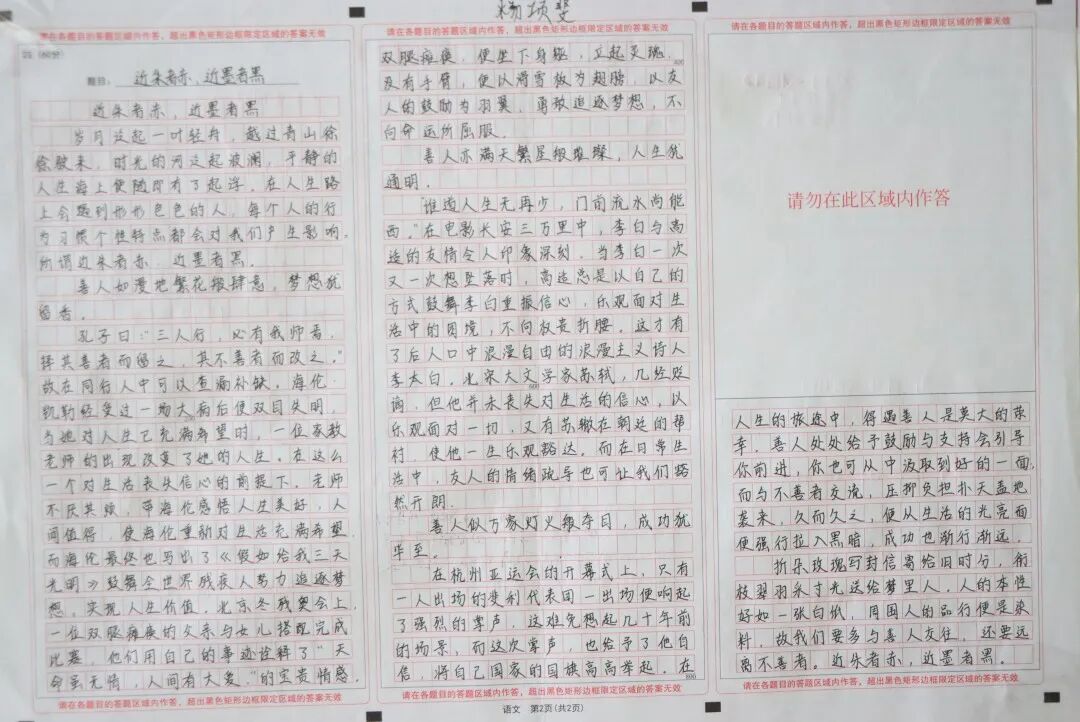 杨项斐
请在各题目的答题区域内作答，超出黑色矩形边框限定区域的答案无效
四（60分）
题目：近朱者赤、近墨者黑
近朱者赤，近墨者黑
岁月泛起一叶轻舟，越过青山徐
徐驶来，时光的河泛起波澜，平静的
人生海上便随即有了起浮。在人生路
上会遇到形形色色的人，每个人的行
为习惯个性特点都会对我们产生影响。
所谓近朱者赤，近墨者黑。
善人如漫地繁花般肆意，梦想犹
留香。
孔子曰：“三人行，必有我师焉，
择其善者而留之，其不善者而改之。”
故在同行人中可以查漏补缺。海伦·
凯勒经受过一场大病后便双目失明，
当她对人生已充满希望时，一位家教
老师的出现改变了她的人生。在这么
一个对生活丧失信心的前提下，老师
不厌其烦，带海伦感悟人生美好，人
间值得，使海伦重新对生活充满希望
而海伦最终也写出了《假如给我三天
光明》鼓舞全世界残疾人努力追逐梦
想，实现人生价值，北京冬残奥会上，
一位双腿瘫痪的父亲与女儿搭配完成
比赛，他们用自己的事迹诠释了“天
命虽无情，人间有大爱。”的宝贵情感。
请在各题目的答题区域内作答，超出黑色矩形边框限定区域的答案无效
请在各题目的答题区域内作答，超出黑色矩形边框限定区域的答案无效
双腿瘫痪，便坐下身躯，立起灵魂。
没有手臂，便以滑雪板为翅膀，以友
人的鼓励为羽翼，勇敢追逐梦想，不
向命运所屈服。
善人亦满天繁星般璀璨，人生犹
通明。
“谁道人生无再少，门前流水尚能
西。”在电影长安三万里中，李白与高
适的友情令人印象深刻。当李白一次
又一次想坠落时，高适总是以自己的
方式鼓舞李白重振信心，乐观面对生
活中的困境，不向权贵折腰。这才有
了后人口中浪漫自由的浪漫主义诗人
李太白。北宋大文学家苏轼，几经贬
600
谪，但他并未丧失对生活的信心，以
乐观面对一切，又有苏辙在朝廷的帮
衬，使他一生乐观豁达。而在日常生
活中，友人的情绪疏导也可让我们豁
然开朗。
善人似万家灯火般夺目，成功犹
毕至。
在杭州亚运会的开幕式上，只有
一人出场的叙利代表团一出场便响起
了强烈的掌声，这难免想起几十年前
的场景，而这次掌声，也给予了他自
信，将自己国家的国旗高高举起。在
800
请在各题目的答题区域内作答，超出黑色矩形边框限定区域的答案无效
语文 第2页(共2页)
请在各题目的答题区域内作答，超出黑色矩形边框限定区域的答案无效
请勿在此区域内作答
人生的旅途中，得遇善人是莫大的荣
幸，善人处处给予鼓励与支持会引导
你前进，你也可从中汲取到好的一面，
而与不善者交流，压抑负担扑天盖地
袭来，久而久之，便从生活的光亮面
便强行拉入黑暗，成功也渐行渐远。
折朵玫瑰写封信寄给旧时分，衔
枝翠羽采寸光送给梦里人。人的本性
好如一张白纸，周围人的品行便是染
料，故我们要多与善人友往，还要远
离不善者。近朱者赤，近墨者黑。
请在各题目的答题区域内作答，超出黑色矩形边框限定区域的答案无效